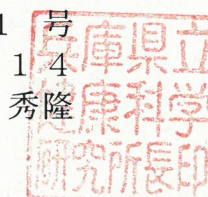 1 号
1 4
秀隆
兵庫県立
健康科学
研究所長印